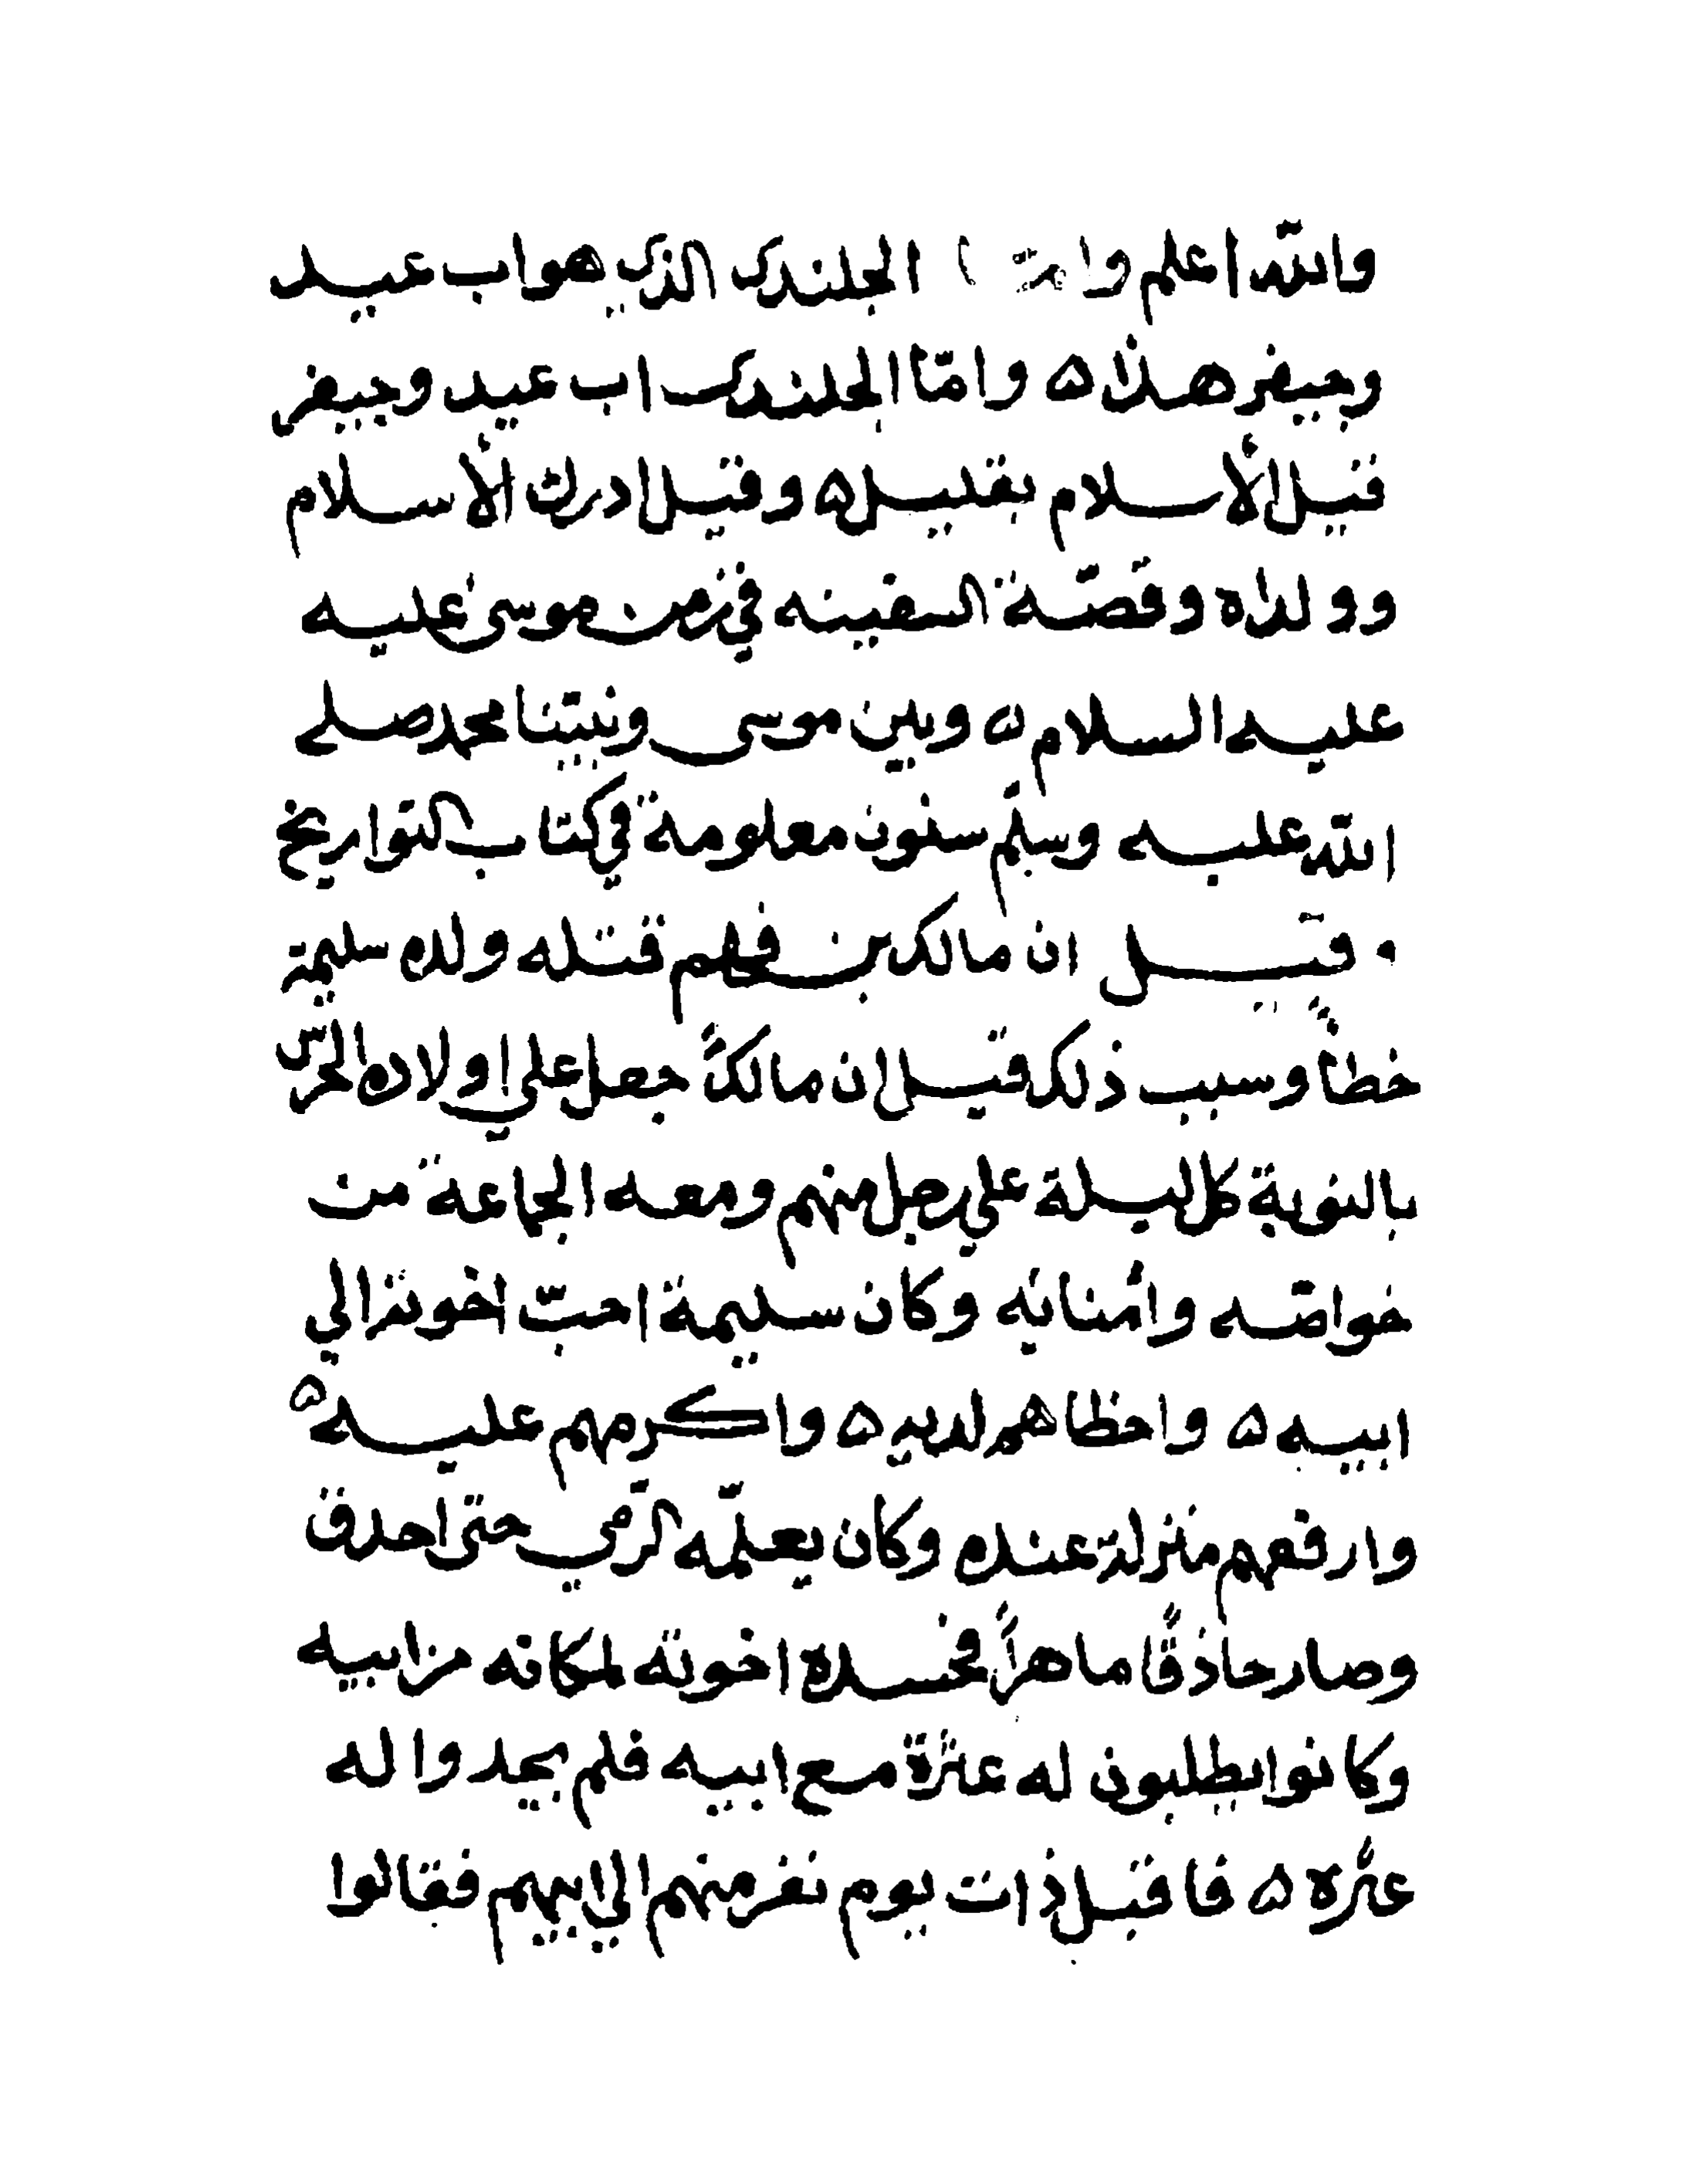 والله اعلم الجلندى الذي هو اب عبيد
وجيفر هذا ه وامّا الجلندى اب عبيد وجيفر
قبل الأسلام بقليل ه وقيل ادرك الأسلام
وولداه وقصّة السفينه في زمن موسى عليه
عليه السلام ه وبين موسى ونبيّنا محمد صلے
الله عليه وسلّم سنون معلومة في كتاب التواريخ
وقيل ان مالك بن فهم قتله ولده سليمة
خطاءً وسبب ذلك قيل ان مالكاً جعل علي اولاده الحرس
بالنوبة كل ليلة علي رجل منهم ومعه الجماعة من
خواصّه وأمنائه وكان سليمة احبّ اخوته الي
ابيه ه واحظاهم لديه ه واكرمهم عليه ه
وارفعهم منزلة عنده وكان يعلّمه الرّمي حتى احدق
وصار حاذقًا ماهراً فحسده اخوته لمكانه من ابيه
وكانوا يطلبون له عثرة مع ابيه فلم يجدوا له
عثرة ه فاقبل ذات يوم نفر منهم الي ابيهم فقالوا